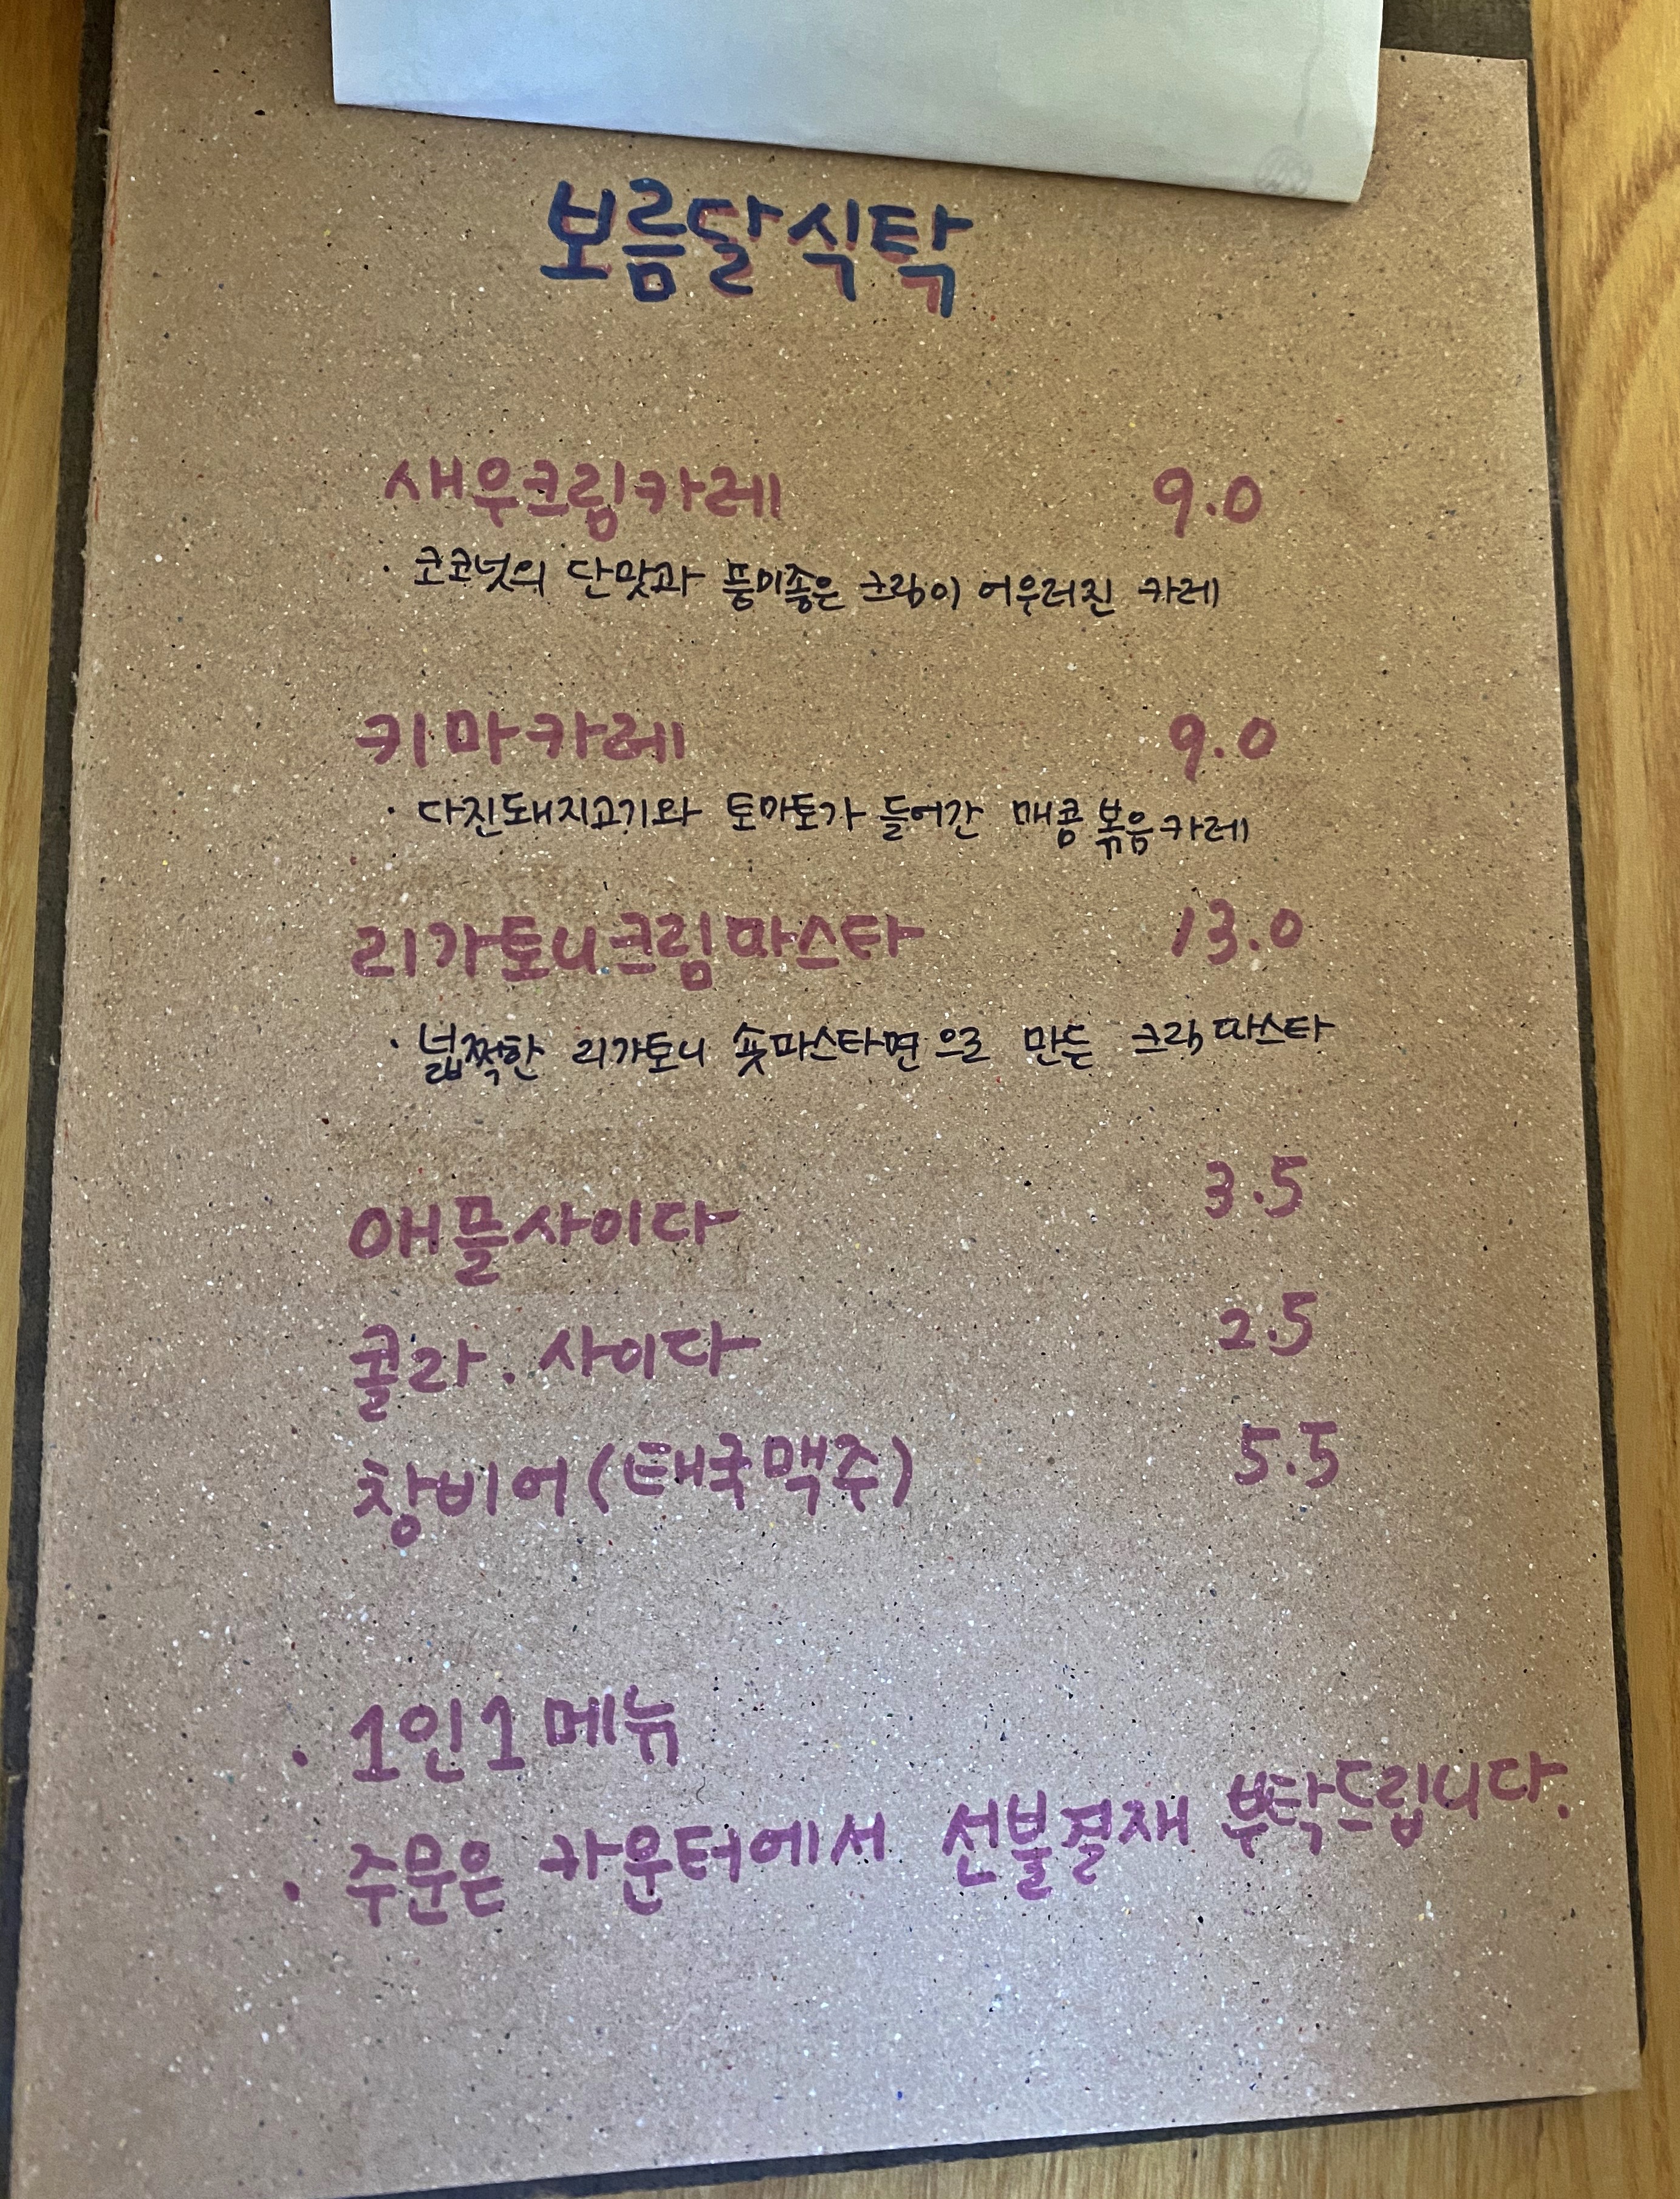 보름달식탁
새우크림카레 9.0
· 코코넛의 단맛과 풍미좋은 크림이 어우러진 카레
키마카레 9.0
· 다진돼지고기와 토마토가 들어간 매콤 볶음카레
리가토니크림파스타 13.0
· 넓쩍한 리가토니 숏파스타면으로 만든 크림파스타
애플사이다 3.5
콜라 . 사이다 2.5
창비어(태국맥주) 5.5
· 1인1메뉴
· 주문은 카운터에서 선불결재 부탁드립니다.